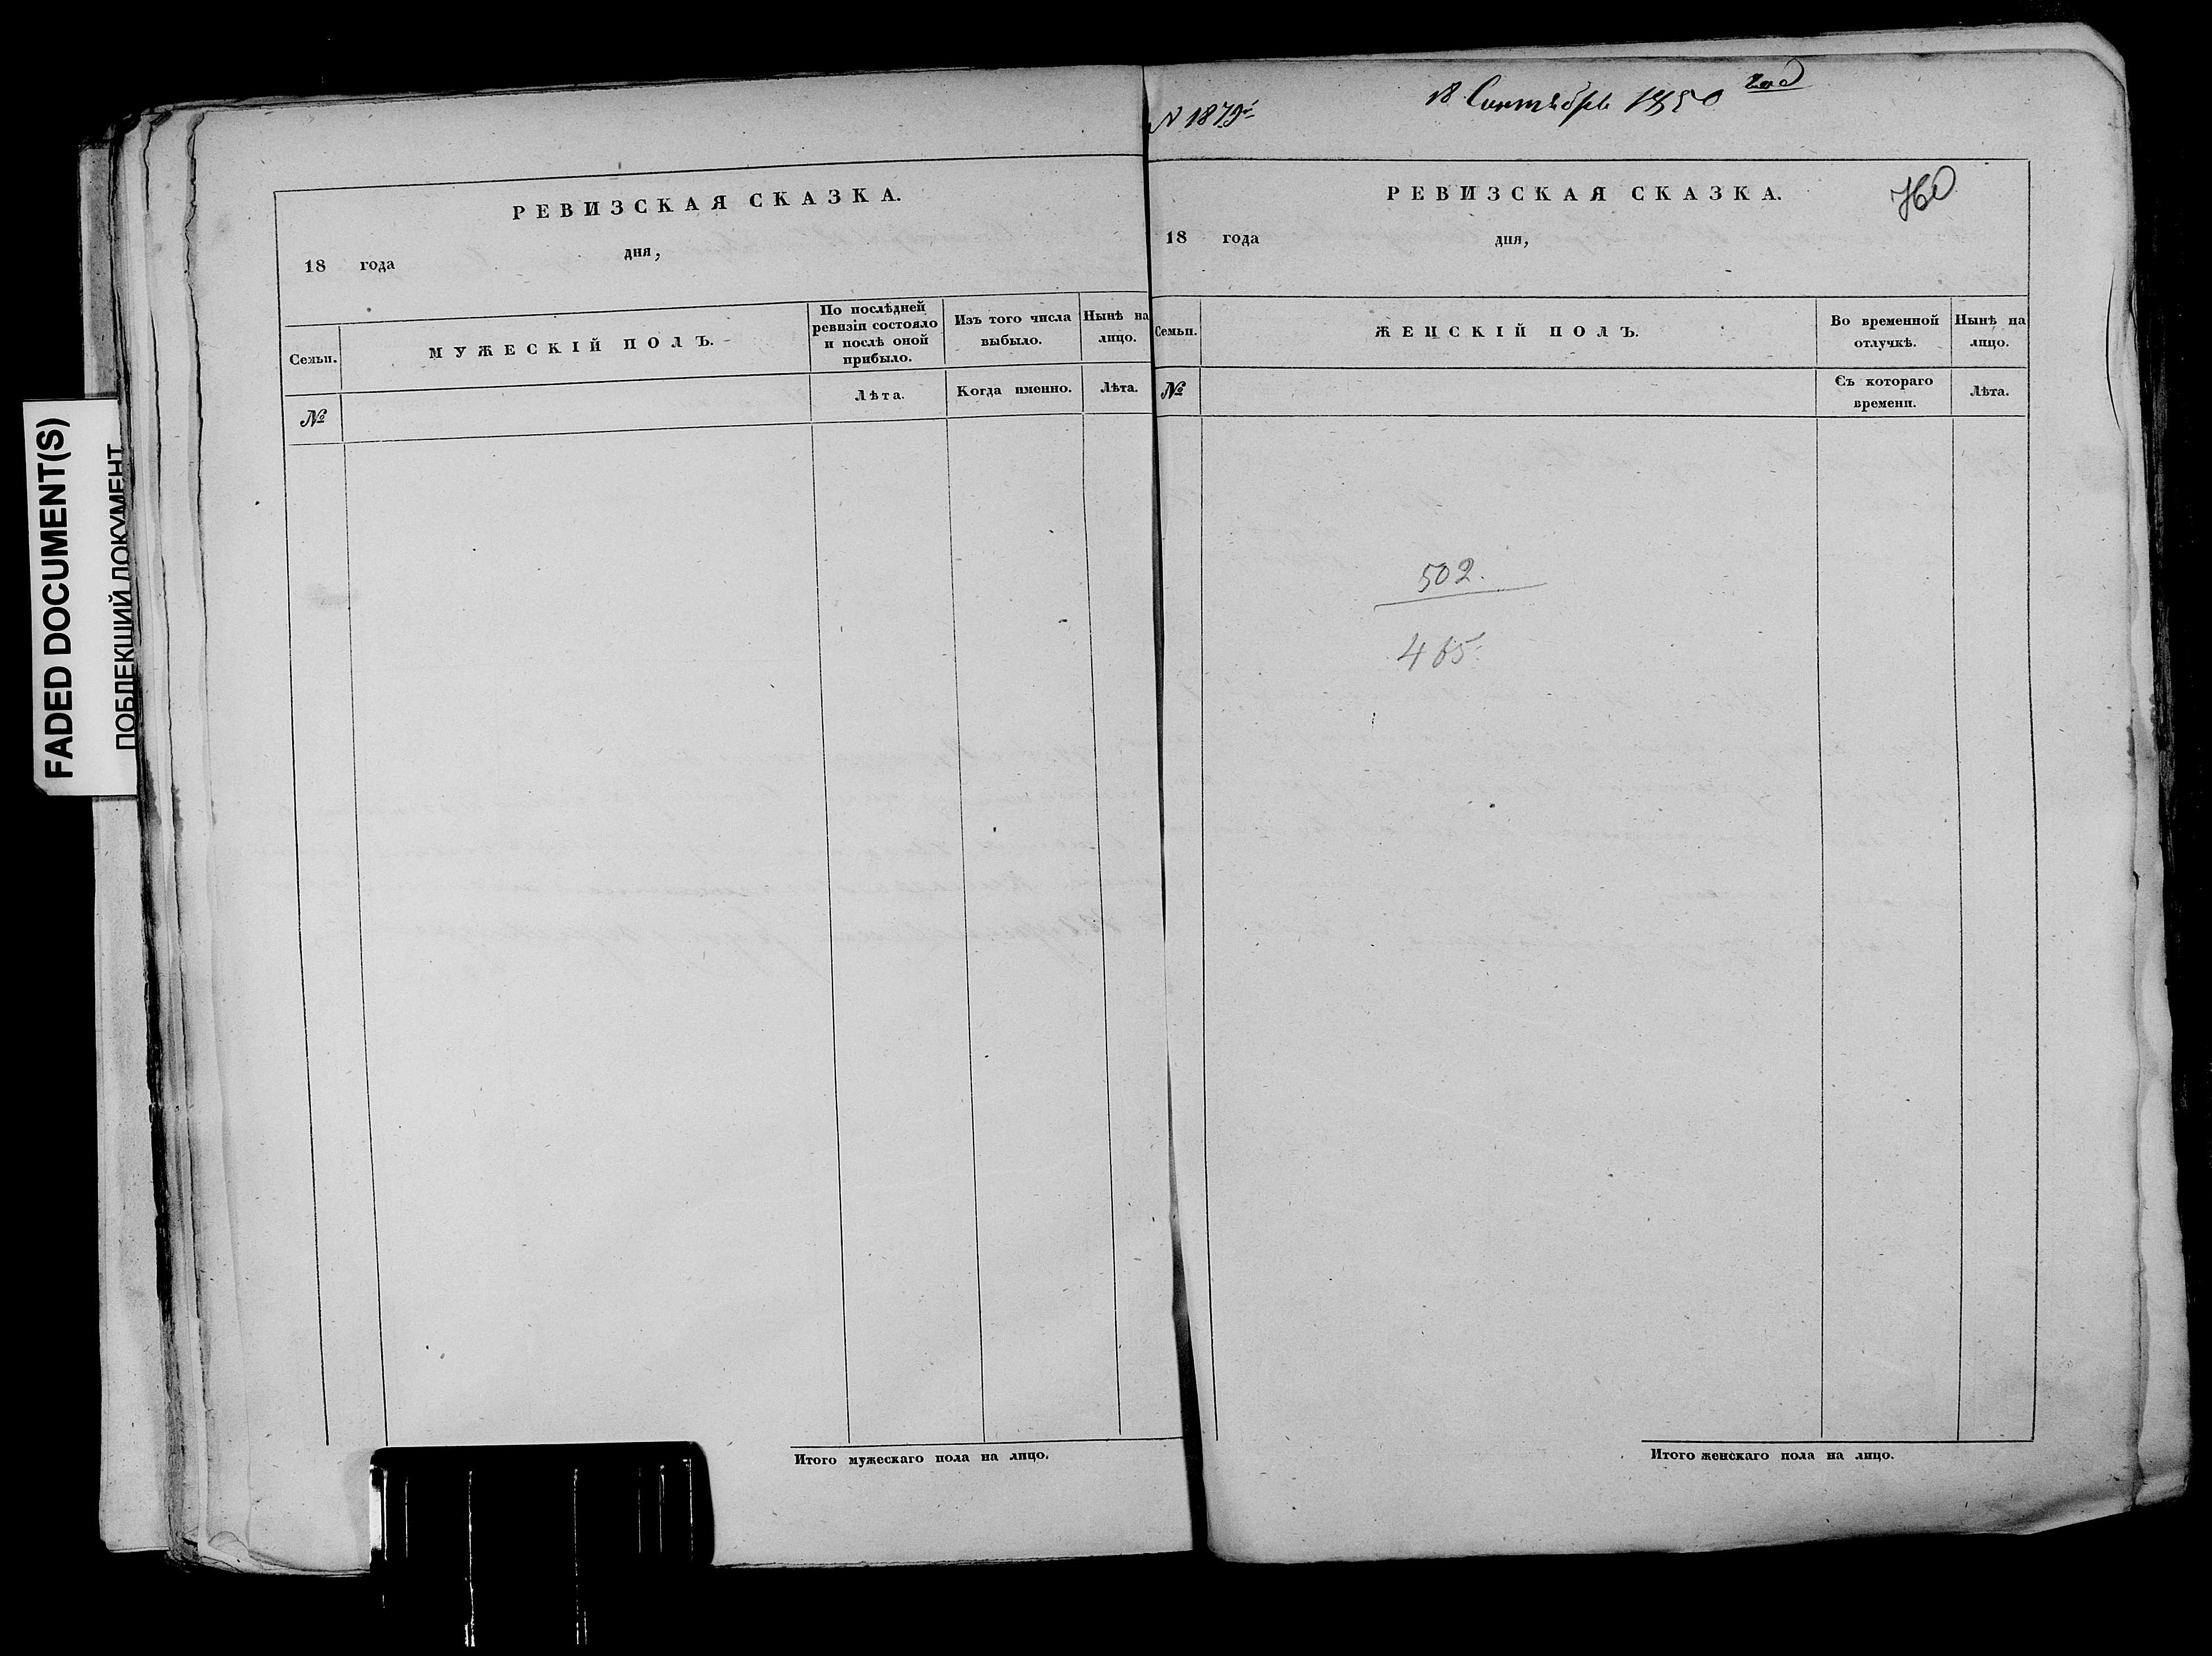 FADED DOCUMENT(S)
ПОБЛЕКШИЙ ДОКУМЕНТ
РЕВИЗСКАЯ СКАЗКА.
18 года дня,
Семьи.
МУЖЕСКІЙ ПОЛЪ.
По послѣдней
ревизіи состояло
и послѣ оной
прибыло.
Изъ того числа
выбыло.
Нынѣ на
лицо.
№
Лѣта.
Когда именно.
Лѣта.
Итого мужескаго пола на лицо.
18 Сентября 1850 год
N 1879й
РЕВИЗСКАЯ СКАЗКА.
760
18 года дня,
Семьи.
ЖЕНСКІЙ ПОЛЪ.
Во временной
отлучкѣ.
Нынѣ на
лицо.
№
Съ котораго
времени.
Лѣта.
502.
465.
Итого женскаго пола на лицо.